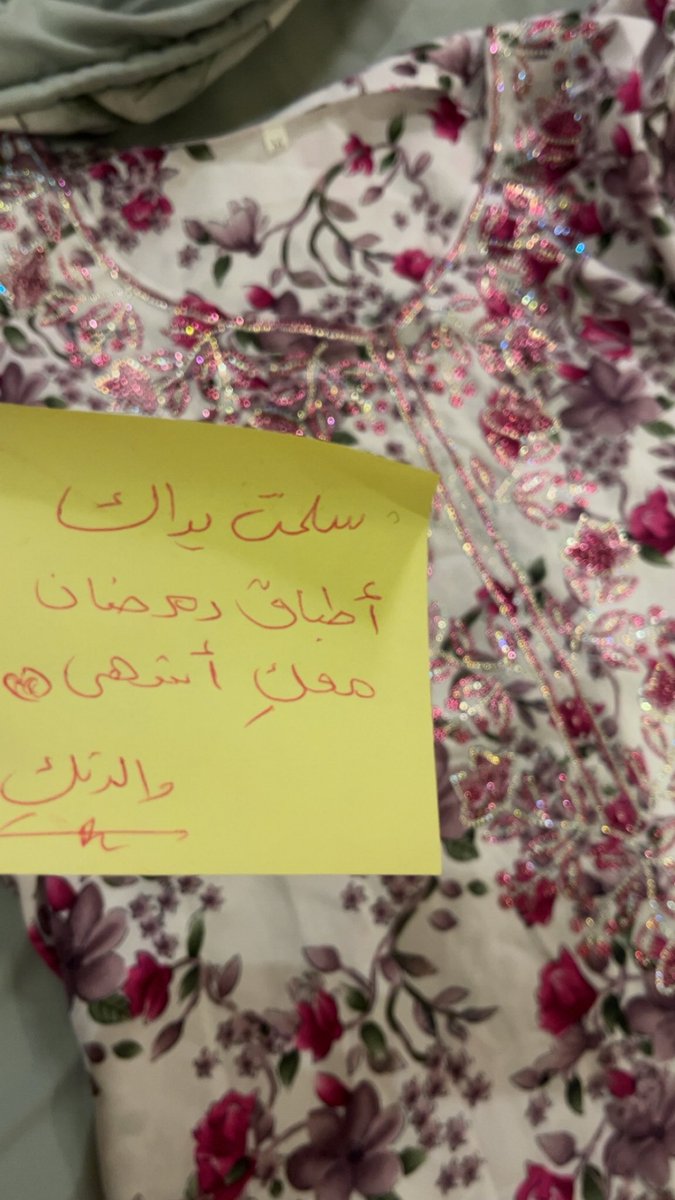 سلمت يداك
أطباق رمضان
معكِ أشهى
والدتكِ